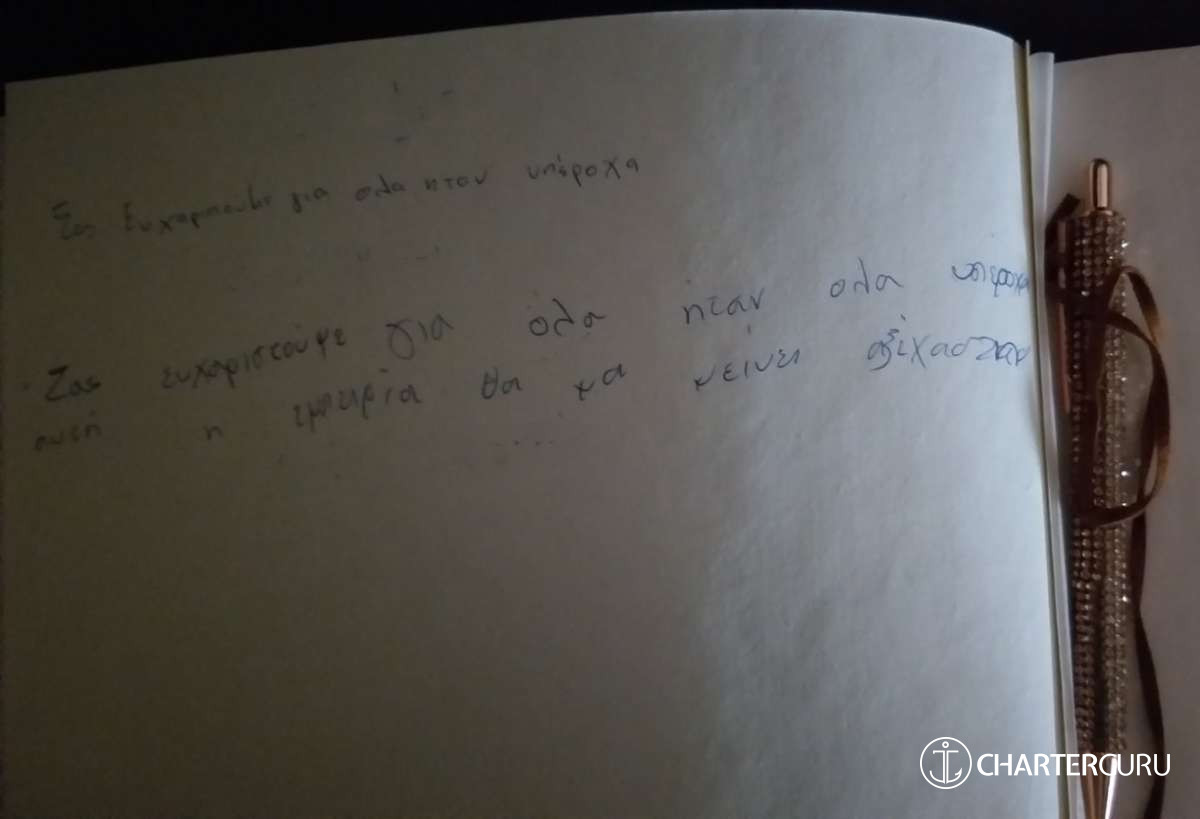 Σας Ευχαριστουμε για ολα ηταν υπέροχα
Σας ευχαριστούμε για όλα ήταν ολα υπέροχα
αυτή η εμπειρία θα μα μείνει αξέχαστη
CHARTERGURU